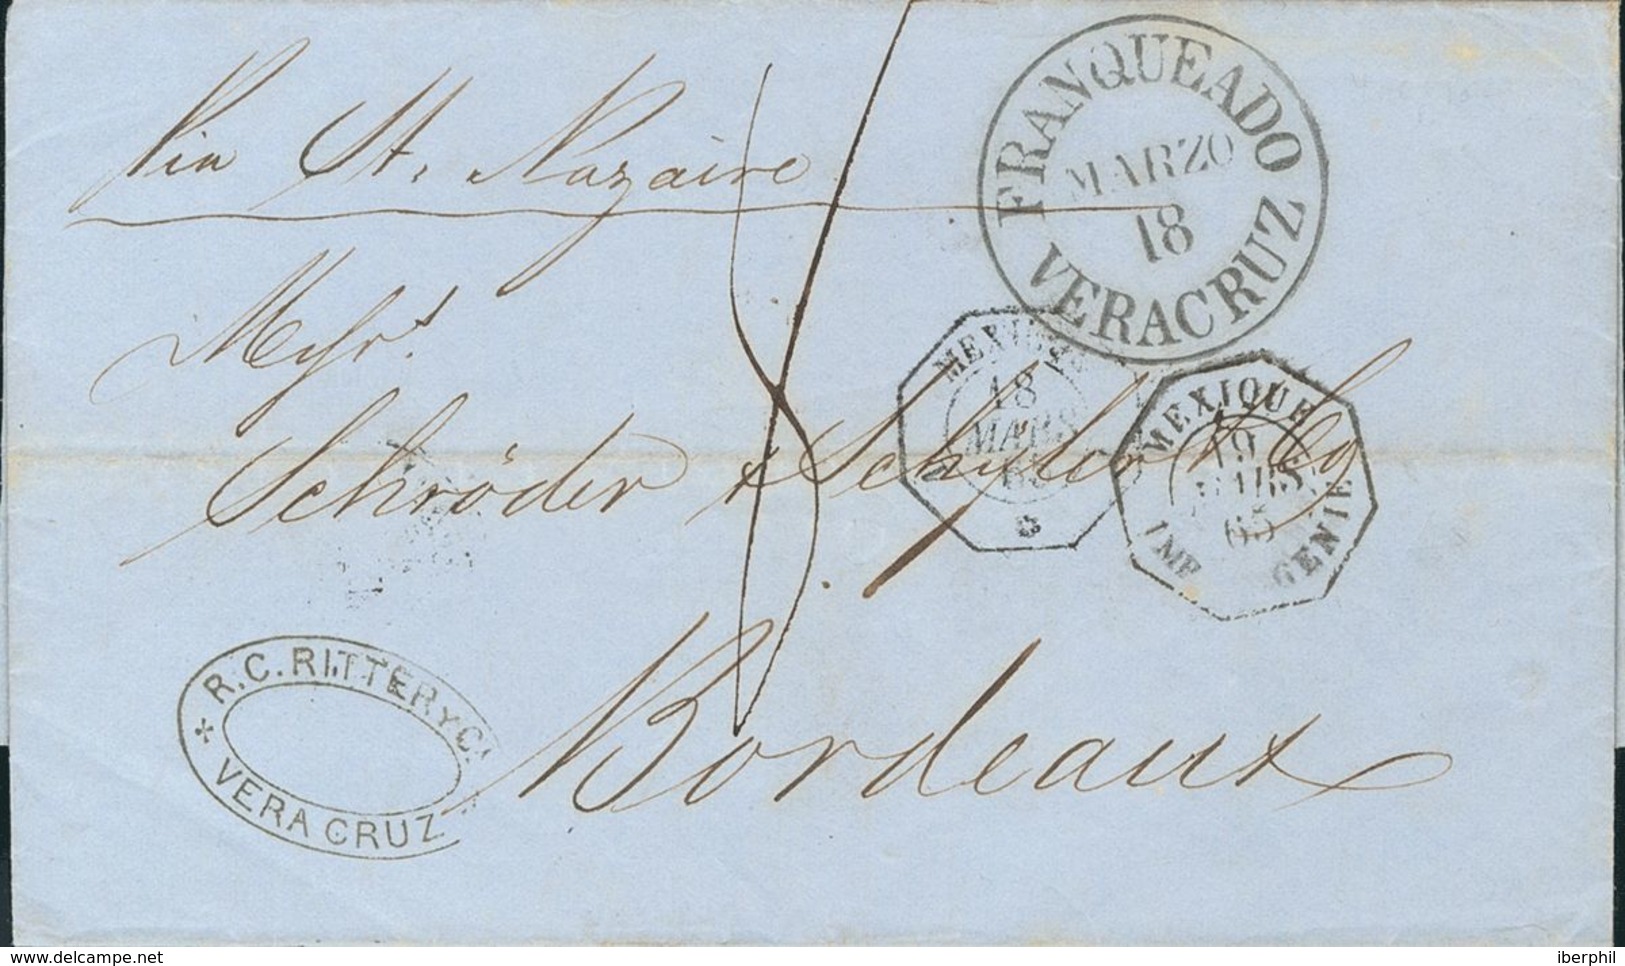 Via St. Nazaire
FRANQUEADO
MARZO
18
VERACRUZ
Messrs.
MEXIQUE
18
MARS
65
MEXIQUE
19
MARS
65
IMP EUGENIE
Schröder & Schyler & Co
Bordeaux
R.C. RITTER Y C.
VERA CRUZ
delcampe.net
iberphil